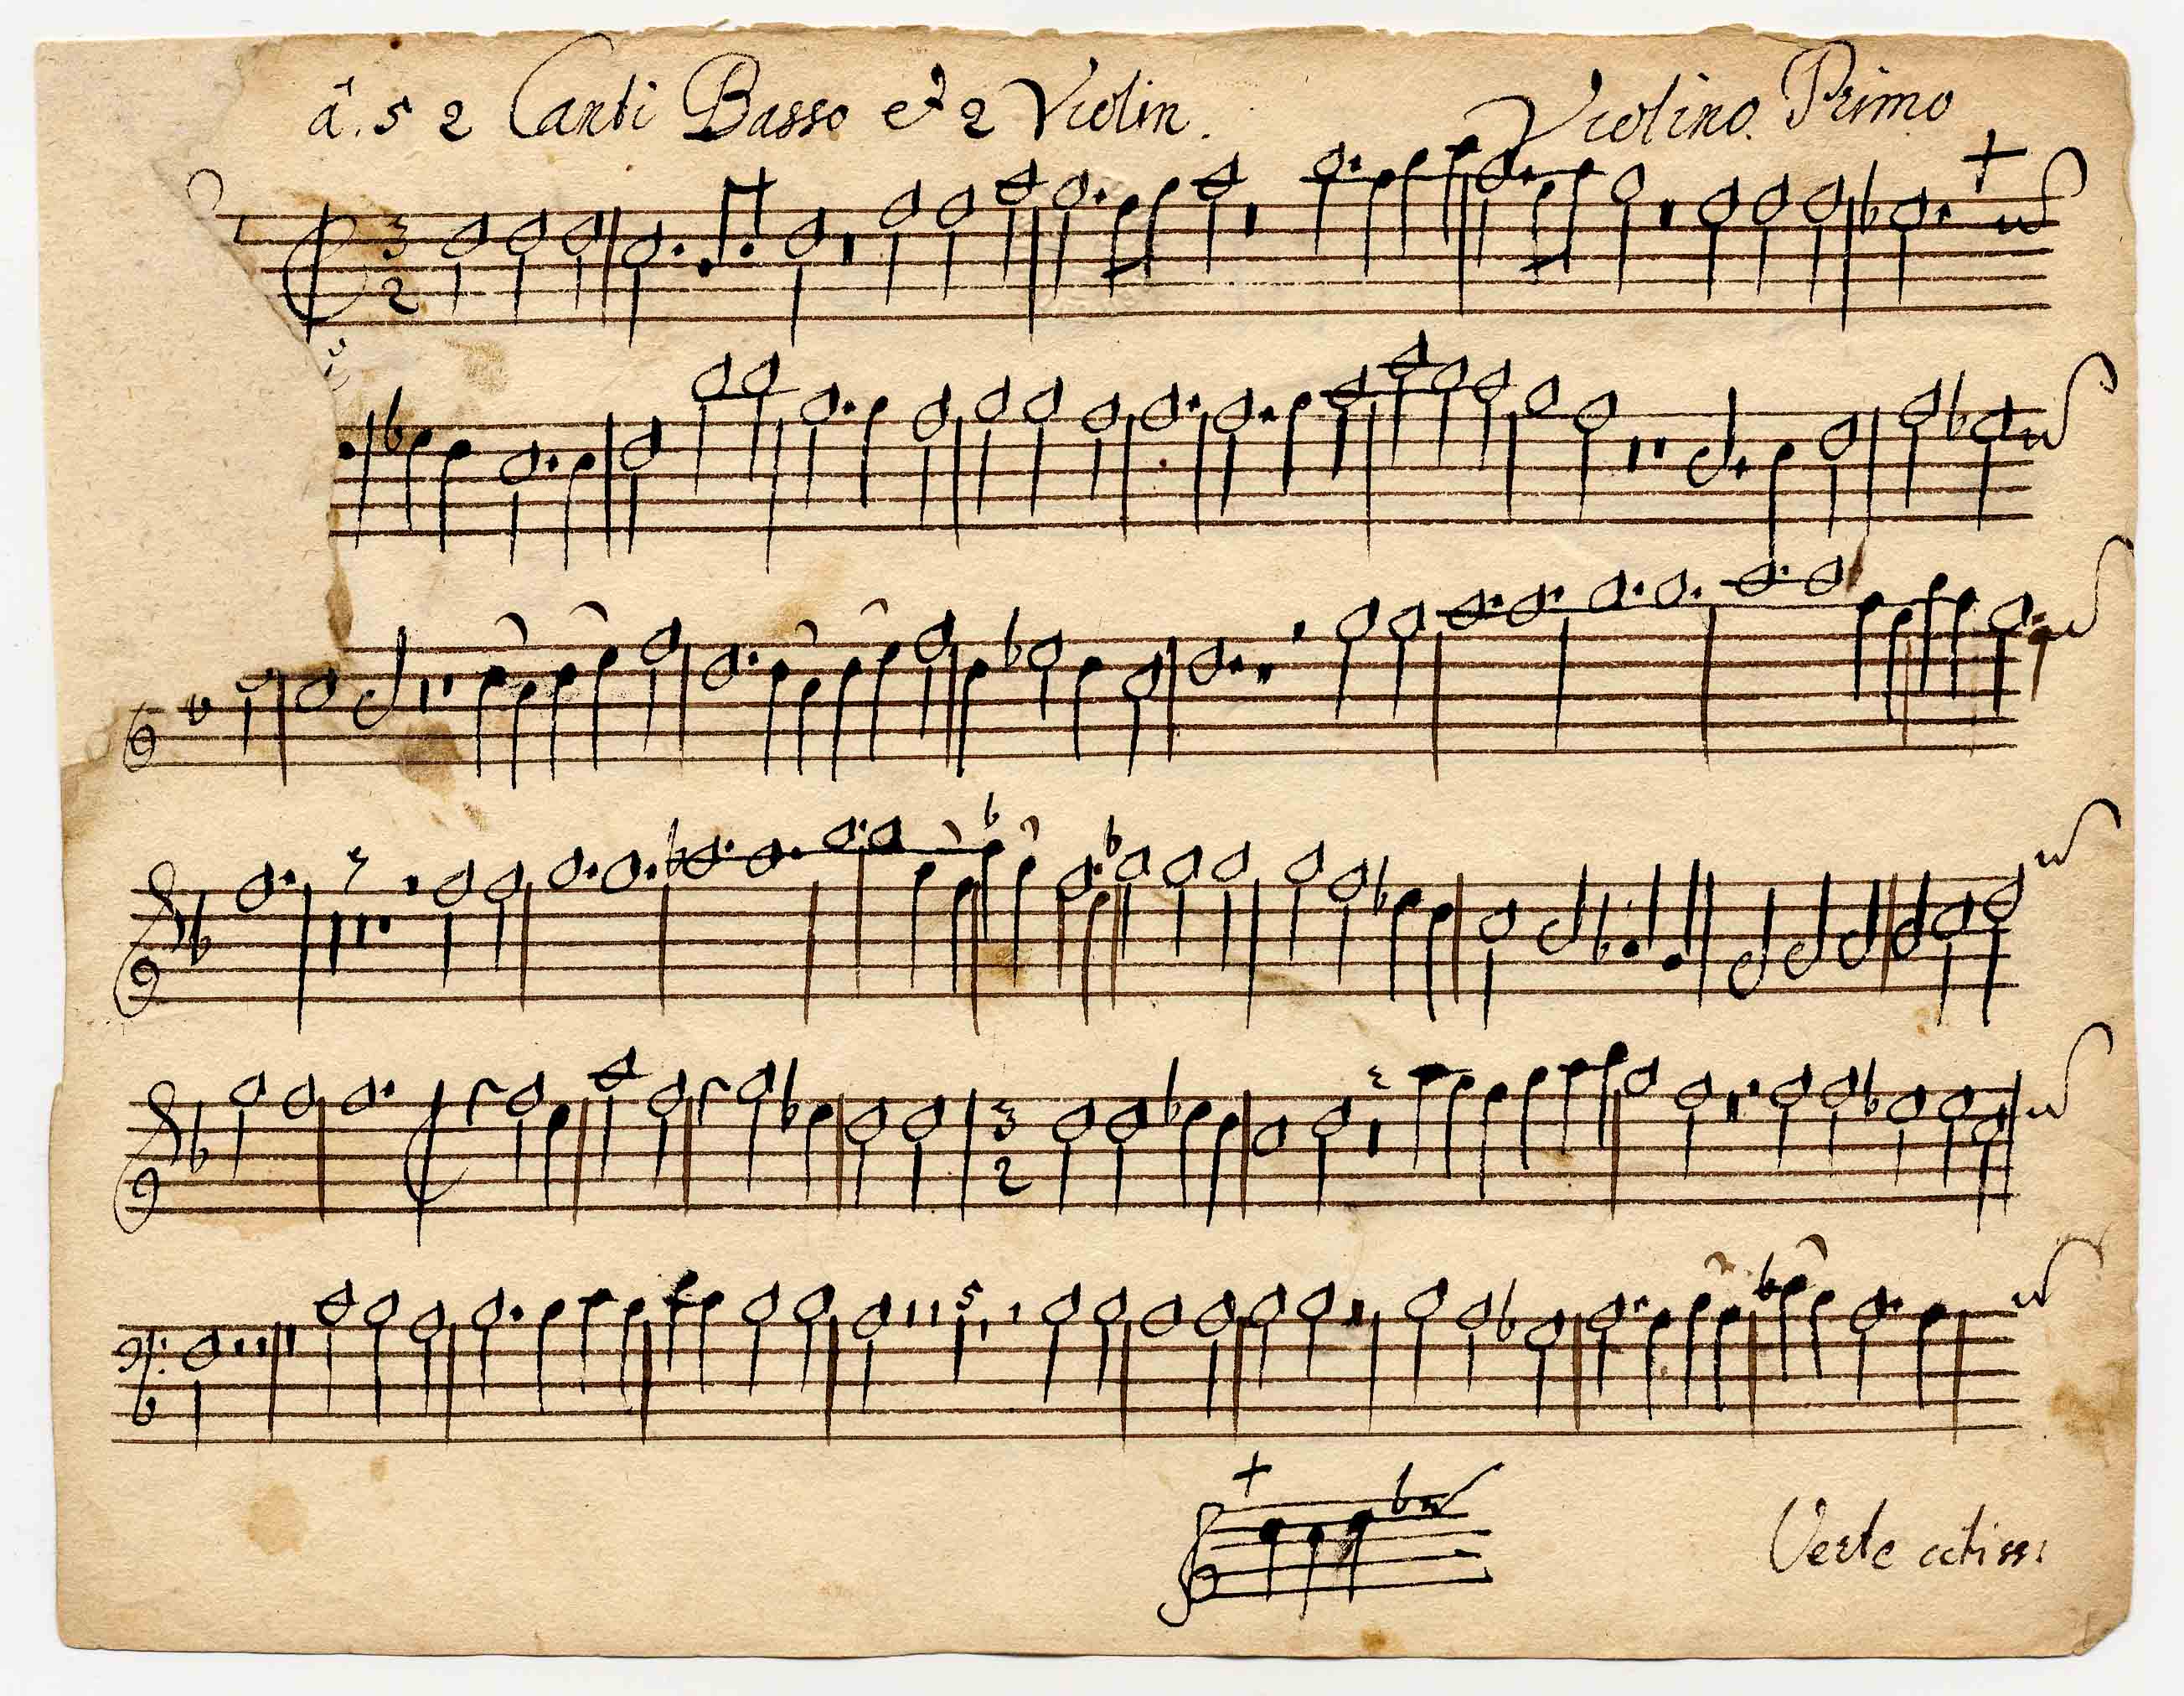 â. 5 2 Canti Basso et 2 Violin. Violino. Primo
3
2
3
2
5
Verte citiss: